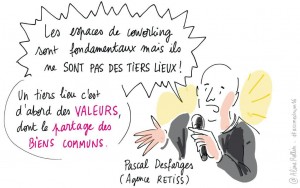 Les espaces de coworking
sont fondamentaux mais ils
ne SONT PAS DES TIERS LIEUX !
Un tiers lieu c'est
d'abord des VALEURS,
dont le partage des
BIENS COMMUNS.
Pascal Desfarges
(Agence RETISS)